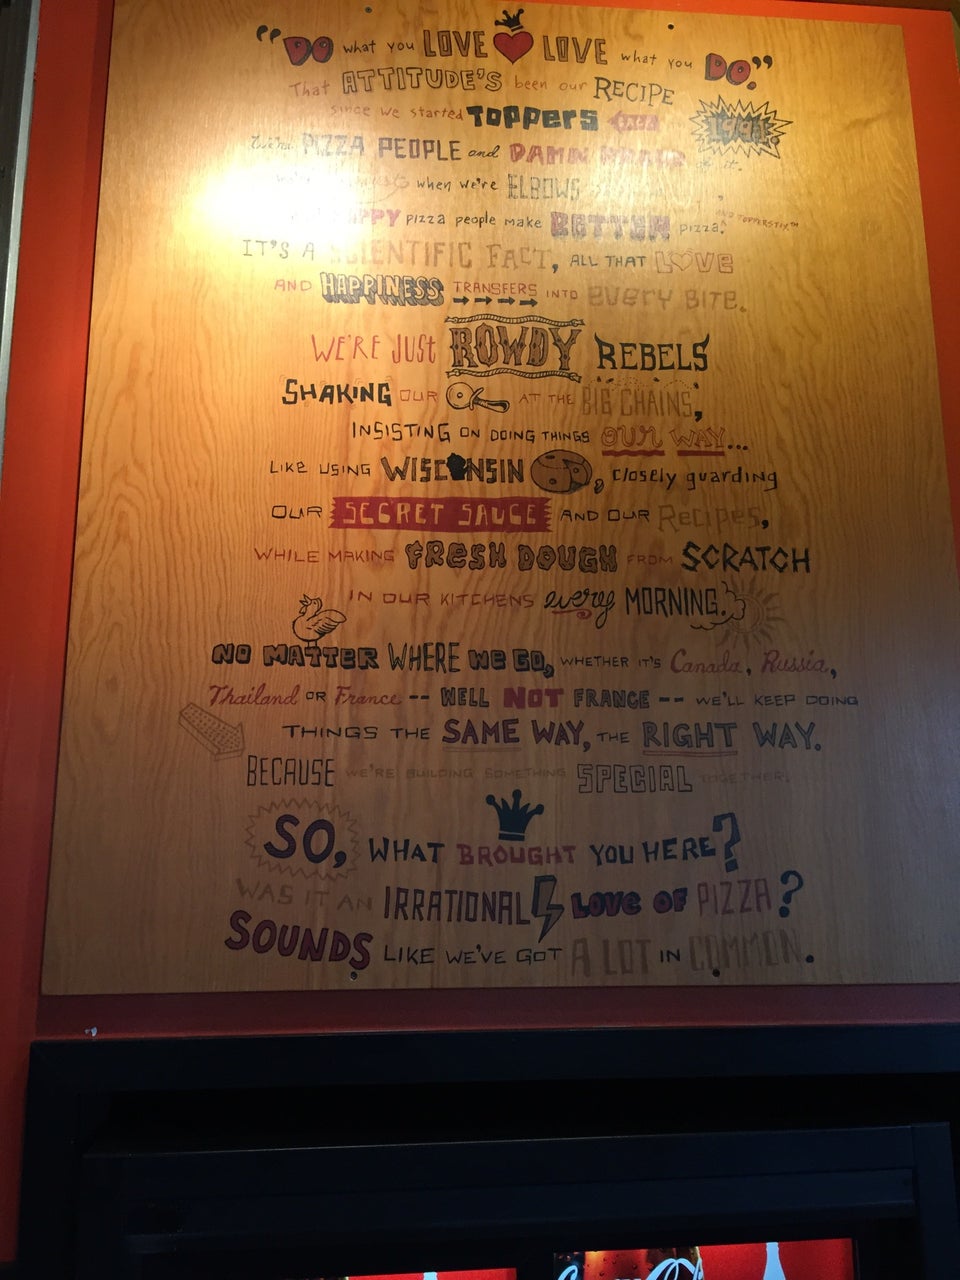 "DO what you LOVE LOVE what you DO."
That ATTITUDE'S been our RECIPE
since we started TOPPERS 1991.
We're PIZZA PEOPLE and DAMN PROUD of it.
when we're ELBOWS
HAPPY pizza people make BETTER pizza. AND TOPPERSTIX™
IT'S A SCIENTIFIC FACT, ALL THAT LOVE
AND HAPPINESS TRANSFERS INTO EVERY BITE.
WE'RE JUST ROWDY REBELS
SHAKING OUR AT THE BIG CHAINS,
INSISTING ON DOING THINGS OUR WAY...
LIKE USING WISCONSIN , closely guarding
OUR SECRET SAUCE AND OUR Recipes,
WHILE MAKING FRESH DOUGH FROM SCRATCH
IN OUR KITCHENS every MORNING.
NO MATTER WHERE WE GO, WHETHER IT'S Canada, Russia,
Thailand OR France -- WELL NOT FRANCE -- WE'LL KEEP DOING
THINGS THE SAME WAY, THE RIGHT WAY.
BECAUSE WE'RE BUILDING SOMETHING SPECIAL TOGETHER.
SO, WHAT BROUGHT YOU HERE?
WAS IT AN IRRATIONAL LOVE OF PIZZA?
SOUNDS LIKE WE'VE GOT A LOT IN COMMON.